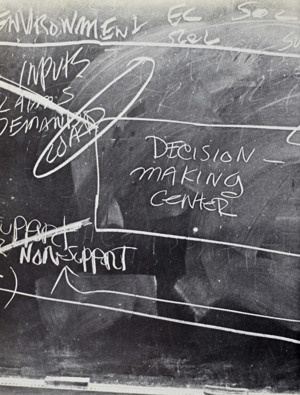 ENVIRONMENT EC SOC
REL
INPUTS
CLAIMS
DEMANDS
LOAD
DECISION -
MAKING
CENTER
SUPPORT
NON-SUPPORT